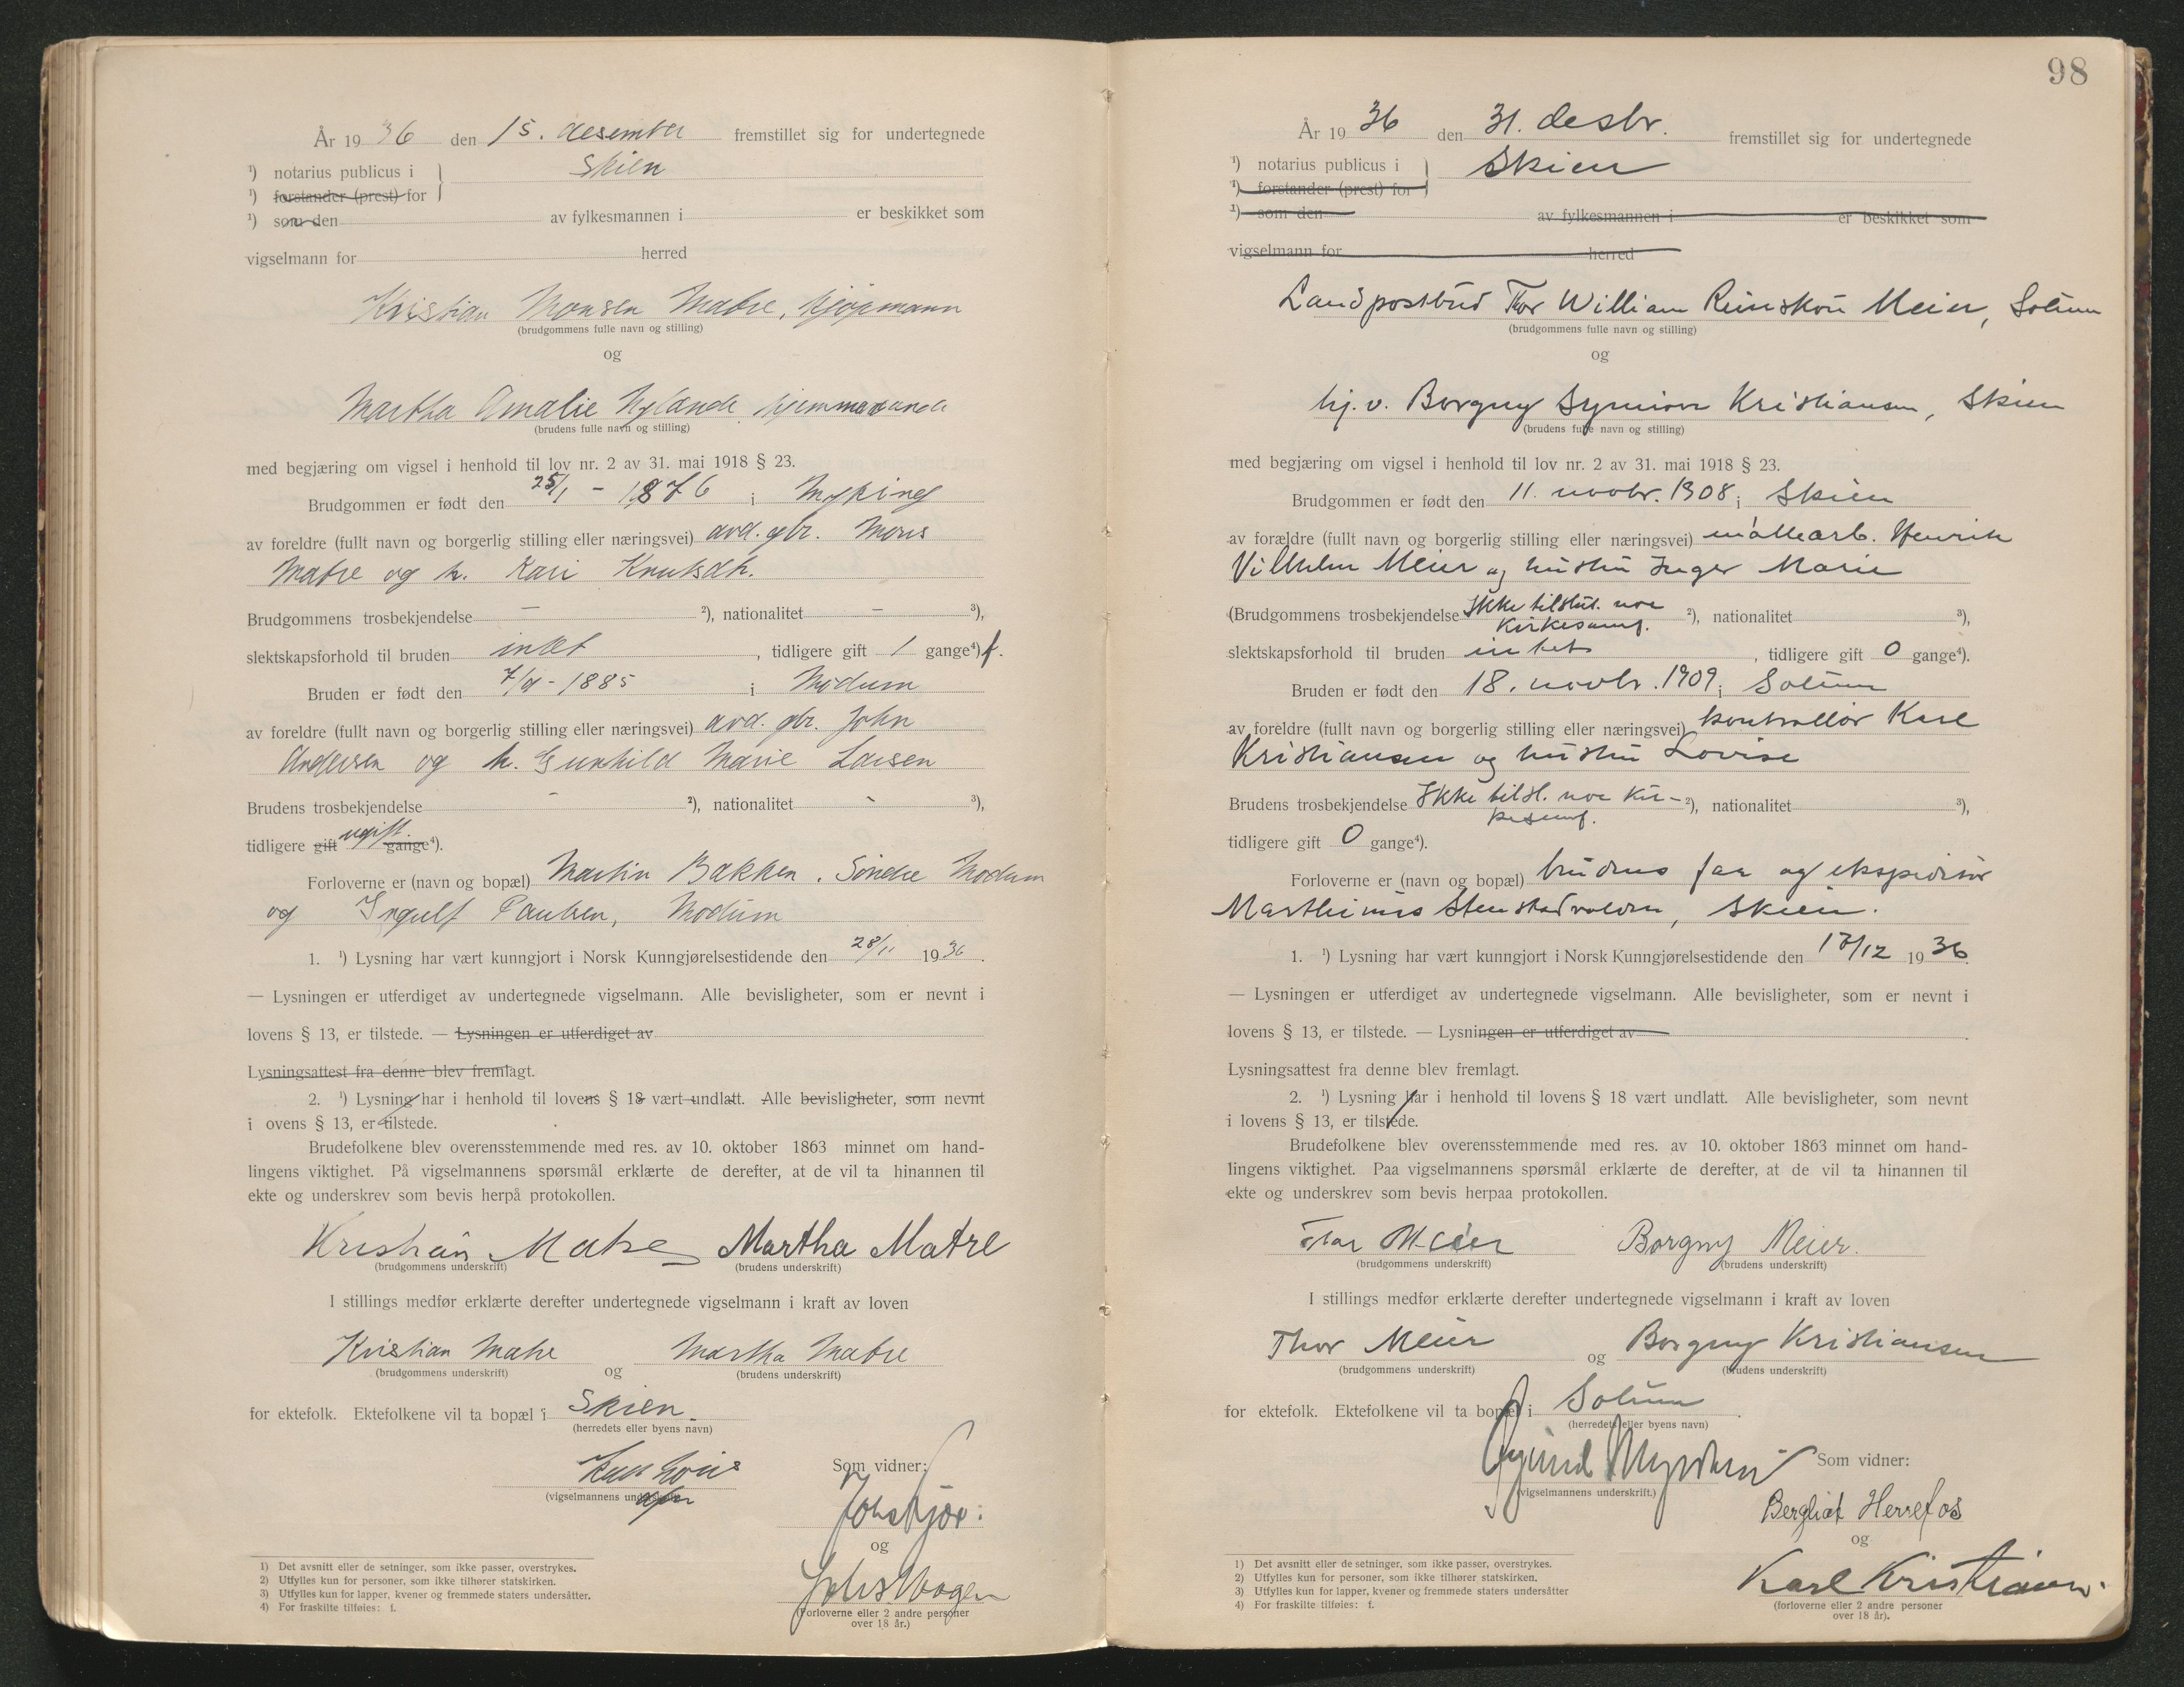 År 1936 den 15. desember fremstillet sig for undertegnede
¹) notarius publicus i Skien
¹) forstander (prest) for
¹) som den av fylkesmannen i er beskikket som
vigselmann for herred
Kristian Monsen Matre, kjøpmann
(brudgommens fulle navn og stilling)
og
Martha Amalie Nylande, hjemmeværende
(brudens fulle navn og stilling)
med begjæring om vigsel i henhold til lov nr. 2 av 31. mai 1918 § 23.
Brudgommen er født den 25/1 - 1876 i Myking
av foreldre (fullt navn og borgerlig stilling eller næringsvei) avd. gbr. Mons
Matre og h. Kari Knutsdtr.
Brudgommens trosbekjendelse — ²), nationalitet — ³),
slektskapsforhold til bruden intet, tidligere gift 1 gange⁴) f.
Bruden er født den 7/9 - 1885 i Modum
av foreldre (fullt navn og borgerlig stilling eller næringsvei) avd. gbr. John
Andersen og h. Gunhild Marie Larsen
Brudens trosbekjendelse - ²), nationalitet - ³),
tidligere gift ugift. gange⁴).
Forloverne er (navn og bopæl) Martin Bakken, Søndre Modum
og Ingulf Paulsen, Modum
1. ¹) Lysning har vært kunngjort i Norsk Kunngjørelsestidende den 28/11 1936.
— Lysningen er utferdiget av undertegnede vigselmann. Alle bevisligheter, som er nevnt i
lovens § 13, er tilstede. — Lysningen er utferdiget av
Lysningsattest fra denne blev fremlagt.
2. ¹) Lysning har i henhold til lovens § 18 vært undlatt. Alle bevisligheter, som nevnt
i ovens § 13, er tilstede.
Brudefolkene blev overensstemmende med res. av 10. oktober 1863 minnet om hand-
lingens viktighet. På vigselmannens spørsmål erklærte de derefter, at de vil ta hinannen til
ekte og underskrev som bevis herpå protokollen.
Kristian Matre Martha Matre
(brudgommens underskrift) (brudens underskrift)
I stillings medfør erklærte derefter undertegnede vigselmann i kraft av loven
Kristian Matre og Martha Matre
(brudgommens underskrift) (brudens underskrift)
for ektefolk. Ektefolkene vil ta bopæl i Skien.
(herredets eller byens navn)
Som vidner:
(vigselmannens underskrift)
og
(Forloverne eller 2 andre personer
over 18 år.)
1) Det avsnitt eller de setninger, som ikke passer, overstrykes.
2) Utfylles kun for personer, som ikke tilhører statskirken.
3) Utfylles kun for lapper, kvener og fremmede staters undersåtter.
4) For fraskilte tilføies: f.
98
År 1936 den 31. desbr. fremstillet sig for undertegnede
¹) notarius publicus i Skien
¹) forstander (prest) for
¹) som den av fylkesmannen i er beskikket som
vigselmann for herred
Landpostbud Thor William Rinskou Meier, Solum
(brudgommens fulle navn og stilling)
og
hj.v. Borgny Synnøve Kristiansen, Skien
(brudens fulle navn og stilling)
med begjæring om vigsel i henhold til lov nr. 2 av 31. mai 1918 § 23.
Brudgommen er født den 11. novbr. 1908 i Skien
av forældre (fullt navn og borgerlig stilling eller næringsvei) møllearb. Henrik
Vilhelm Meier og hustru Inger Marie
(Brudgommens trosbekjendelse Ikke tilslut. noe kirkesamf. ²), nationalitet ³),
slektskapsforhold til bruden intet, tidligere gift 0 gange⁴).
Bruden er født den 18. novbr. 1909 i Solum
av foreldre (fullt navn og borgerlig stilling eller næringsvei) kontrollør Karl
Kristiansen og hustru Lovise
Brudens trosbekjendelse Ikke tilsl. noe kir-kesamf. ²), nationalitet ³),
tidligere gift 0 gange⁴).
Forloverne er (navn og bopæl) brudens far og ekspeditør
Marthinius Stenstadvolden, Skien.
1. ¹) Lysning har vært kunngjort i Norsk Kunngjørelsestidende den 17/12 1936.
— Lysningen er utferdiget av undertegnede vigselmann. Alle bevisligheter, som er nevnt i
lovens § 13, er tilstede. — Lysningen er utferdiget av
Lysningsattest fra denne blev fremlagt.
2. ¹) Lysning har i henhold til lovens § 18 vært undlatt. Alle bevisligheter, som nevnt
i lovens § 13, er tilstede.
Brudefolkene blev overensstemmende med res. av 10. oktober 1863 minnet om hand-
lingens viktighet. Paa vigselmannens spørsmål erklærte de derefter, at de vil ta hinannen til
ekte og underskrev som bevis herpaa protokollen.
Thor Meier Borgny Meier.
(brudgommens underskrift) (brudens underskrift)
I stillings medfør erklærte derefter undertegnede vigselmann i kraft av loven
Thor Meier og Borgny Kristiansen
(brudgommens underskrift) (brudens underskrift)
for ektefolk. Ektefolkene vil ta bopæl i Solum.
(herredets eller byens navn)
Som vidner:
(vigselmannens underskrift.)
Bergliot Herrefos
og
Karl Kristiansen.
(forloverne eller 2 andre personer
over 18 år).
1) Det avsnitt eller de setninger, som ikke passer, overstrykes.
2) Utfylles kun for personer, som ikke tilhører statskirken.
3) Utfylles kun for lapper, kvener og fremmede staters undersåtter
4) For fraskilte tilføies: f.